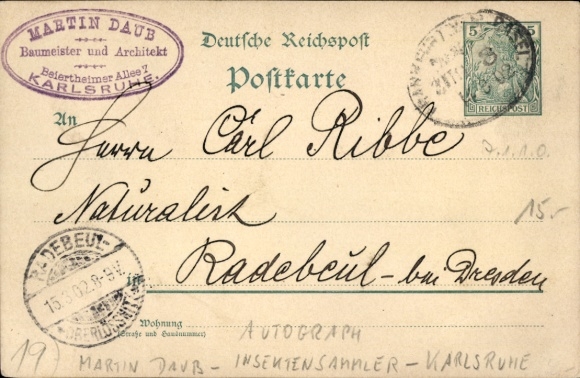 MARTIN DAUB
Baumeister und Architekt
Beiertheimer Allee 7
KARLSRUHE.
Deutsche Reichspost
Postkarte
5 5
REICHSPOST
BASEL
An
Herrn Carl Ribbe
Naturalist
15.-
in Radebeul - bei Dresden
RADEBEUL-
15.3.02.8-9V.
Wohnung
(Straße und Hausnummer)
AUTOGRAPH
19) MARTIN DAUB - INSEKTENSAMMLER - KARLSRUHE